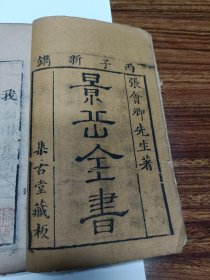 丙子新鐫
張會卿先生著
景岳全書
集古堂藏板
我